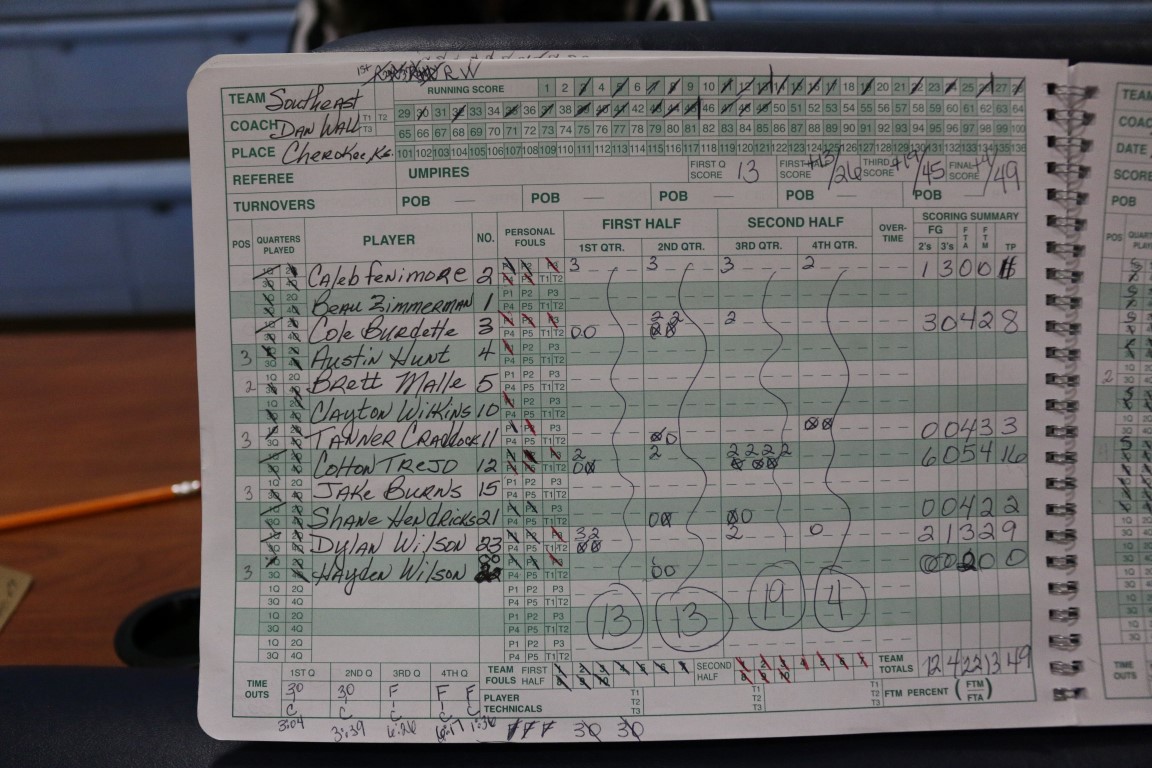 1st RW
TEAM Southeast T1 T2 RUNNING SCORE 1 2 3 4 5 6 7 8 9 10 11 12 13 14 15 16 17 18 19 20 21 22 23 24 25 26 27 28
COACH DAN WALL T3 29 30 31 32 33 34 35 36 37 38 39 40 41 42 43 44 45 46 47 48 49 50 51 52 53 54 55 56 57 58 59 60 61 62 63 64
65 66 67 68 69 70 71 72 73 74 75 76 77 78 79 80 81 82 83 84 85 86 87 88 89 90 91 92 93 94 95 96 97 98 99 100
PLACE Cherokee Ks. 101 102 103 104 105 106 107 108 109 110 111 112 113 114 115 116 117 118 119 120 121 122 123 124 125 126 127 128 129 130 131 132 133 134 135 136
REFEREE UMPIRES FIRST Q SCORE 13 FIRST SCORE +13/26 THIRD SCORE +19/45 FINAL SCORE +4/49
TURNOVERS POB — POB — POB — POB — POB —
POS QUARTERS PLAYED PLAYER NO. PERSONAL FOULS FIRST HALF SECOND HALF OVER-TIME SCORING SUMMARY
1ST QTR. 2ND QTR. 3RD QTR. 4TH QTR. FG 2's 3's FTA FTM TP
Caleb Fenimore 2 3 3 3 2 1 3 0 0 11
Beau Zimmerman 1
Cole Burdette 3 00 2 2 00 2 3 0 4 2 8
3 Austin Hunt 4
2 Brett Malle 5
Clayton Wilkins 10
3 Tanner Craddock 11 00 00 0 0 4 3 3
Colton Trejo 12 2 00 2 2 2 2 2 000 6 0 5 4 16
3 Jake Burns 15
Shane Hendricks 21 00 00 0 0 4 2 2
Dylan Wilson 23 3 2 00 2 0 2 1 3 2 9
3 Hayden Wilson 00 00 0 0 2 0 0
13 13 19 4
TIME OUTS 1ST Q 2ND Q 3RD Q 4TH Q TEAM FOULS FIRST HALF 1 2 3 4 5 6 7 8 9 10 SECOND HALF 1 2 3 4 5 6 7 8 9 10 TEAM TOTALS 12 4 22 13 49
30 30 F F F PLAYER TECHNICALS T1 T2 T3 T1 T2 T3 T1 T2 T3 FTM PERCENT (FTM/FTA)
C C C C C
3:04 3:39 1:36
F F F 30 30
TEAM
COAC
DATE
SCORE
POB
POS
TIME OUTS